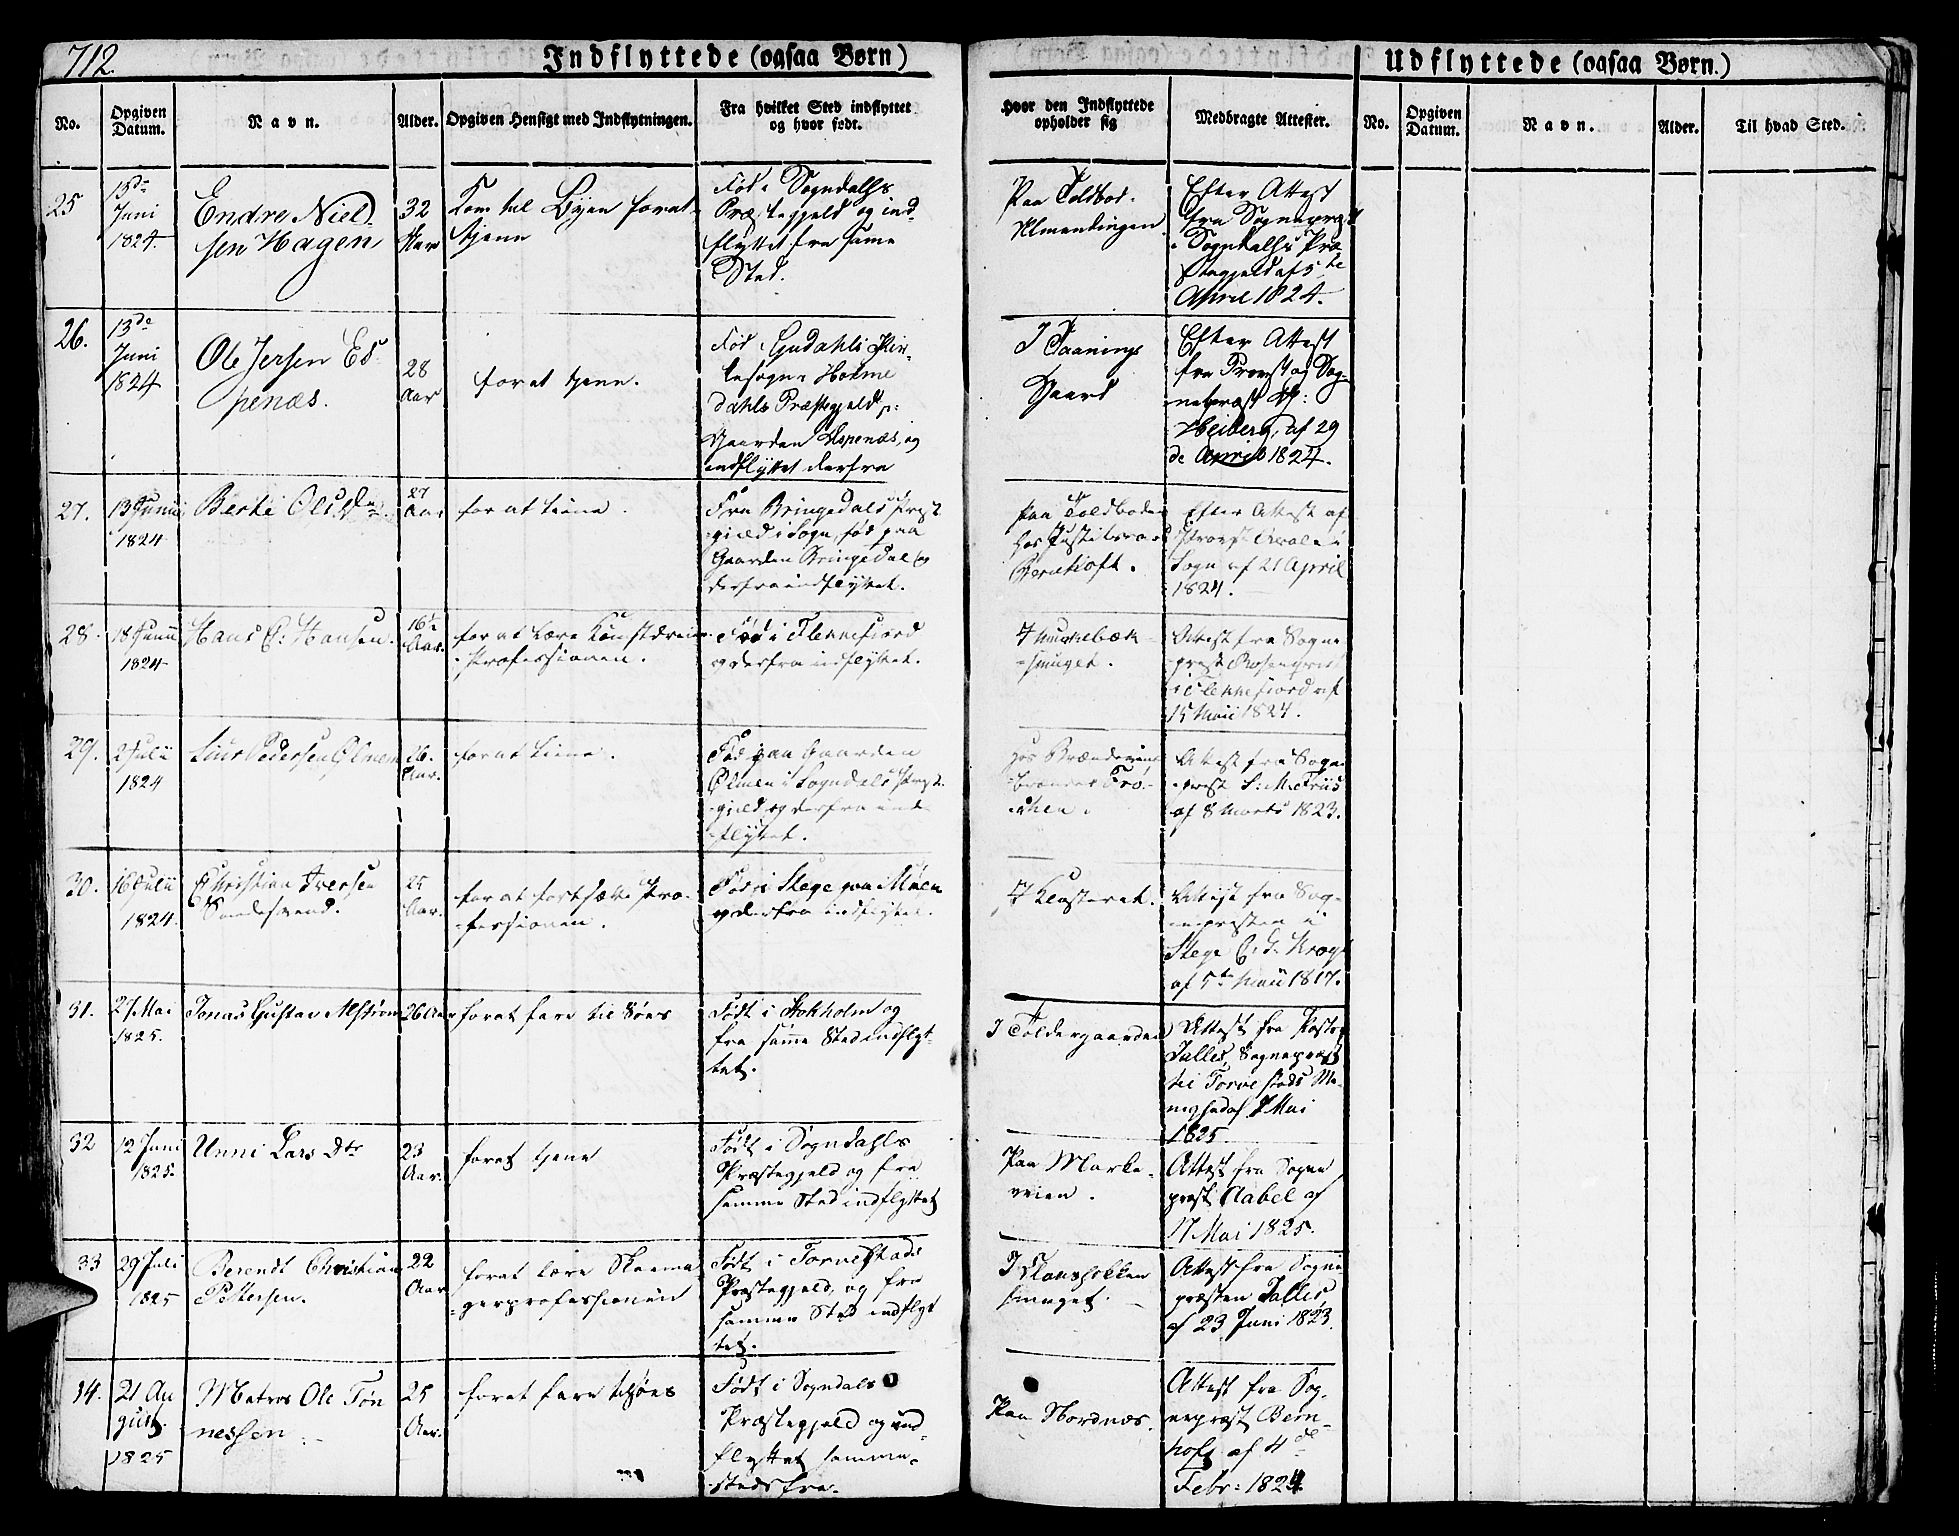 712.
Indflyttede (ogsaa Børn)
Udflyttede (ogsaa Børn.)
No.
Opgiven Datum.
Navn.
Alder.
Opgiven Hensigt med Indflytningen.
Fra hvilket Sted indflyttet og hvor født.
Hvor den Indflyttede opholder sig
Medbragte Attester.
No.
Opgiven Datum.
Navn.
Alder.
Til hvad Sted.
25
13de
Juni
1824
Endre Niel-
sen Hagen
32
Aar
Kom til Byen forat
tjene
Fød i Sogndahls
Præstegjeld og ind-
flyttet fra samme
Sted.
Paa Toldbod-
Almendingen
Efter Attest
fra Sognepræst
i Sogndahls Præ
stegjeld af 5te
April 1824.
26.
13de
Juni
1824
Ole Jersen Es-
penæs.
28
Aar
forat tjene.
Fød i
Præstegjeld p:
Gaarden Espenæs, og
indflyttet derfra
I
Gaard
Efter Attest
fra Provst og Sog-
nepræst
Heiberg, af 29
de April 1824.
27.
13 Junii
1824
27
Aar
for at tiene.
Fra Bringedals Præst
-gield i Sogn, fød paa
Gaarden Bringedal og
derfra indflyttet.
Paa Toldboden
hos Justitsraad
Efter Attest af
Provst
Sogn af 21 April
1824.
28.
18 Junii
1824
Hans C: Hansen.
16½
Aar.
for at lære Kunstdreier
-Professionen.
Fød i Flekkefiord
og derfra indflyttet.
-smuget.
Attest fra Sogne
-præst
i Flekkefiord af
15 Maii 1824.
29.
2 Julii
1824
Siur Pedersen Ølmen
26.
Aar.
for at tiene.
Fød paa Gaarden
Ølmen i Sogndals Præst-
-gield og derfra ind-
-flyttet.
hos Brændeviins
-brænder Frø-
-chen.
Attest fra Sogne
-præst S: M: Friis
af 8 Marts 1823.
30.
16 Julii
1824
Christian Iversen
25
Aar.
for at fortsætte Pro-
-fessionen.
Fød i Stege paa Møen
og derfra indflyttet.
I Klosteret.
Attest fra Sog-
-nepræsten i
Stege
af 5te Maii 1817.
31.
27 Mai
1825.
Jonas Gustav Alstrøm
26 Aar
forat fare til Søes
Født i Stokholm og
fra samme Sted indflyt-
tet.
I Toldergaarden
Attest fra Pastor
Jalles, Sognepræst
til Torvestads Me-
nighed af 7 Mai
1825.
32
12 Juni
1825
Unni Lars Dtr
23
Aar.
forat tjene
Født i Sogndahls
Præstegjeld og fra
samme Sted indflyttet
Paa Marke-
veien.
Attest fra Sogne
præst Aabel af
17 Mai 1825.
33
29 Juli
1825
Berendt Christian
Pettersen.
22
Aar
forat lære Skoma-
-gerprofessionen
Født i Torvestads
Præstegjeld, og fra
samme Sted indflyt
tet.
I Klonshokken
smuget.
Attest fra Sogne
præsten Jalles,
af 23 Juni 1823.
34.
21 Au
gust
1825
Matros Ole Tøn
nessen
25
Aar.
forat fare tilsøes
Født i Sogndals
Præstegjeld og ind-
flyttet samme-
stedsfra.
Paa Nordnæs.
Attest fra Sog-
nepræst Bern-
hoft af 4de
Febr: 1824